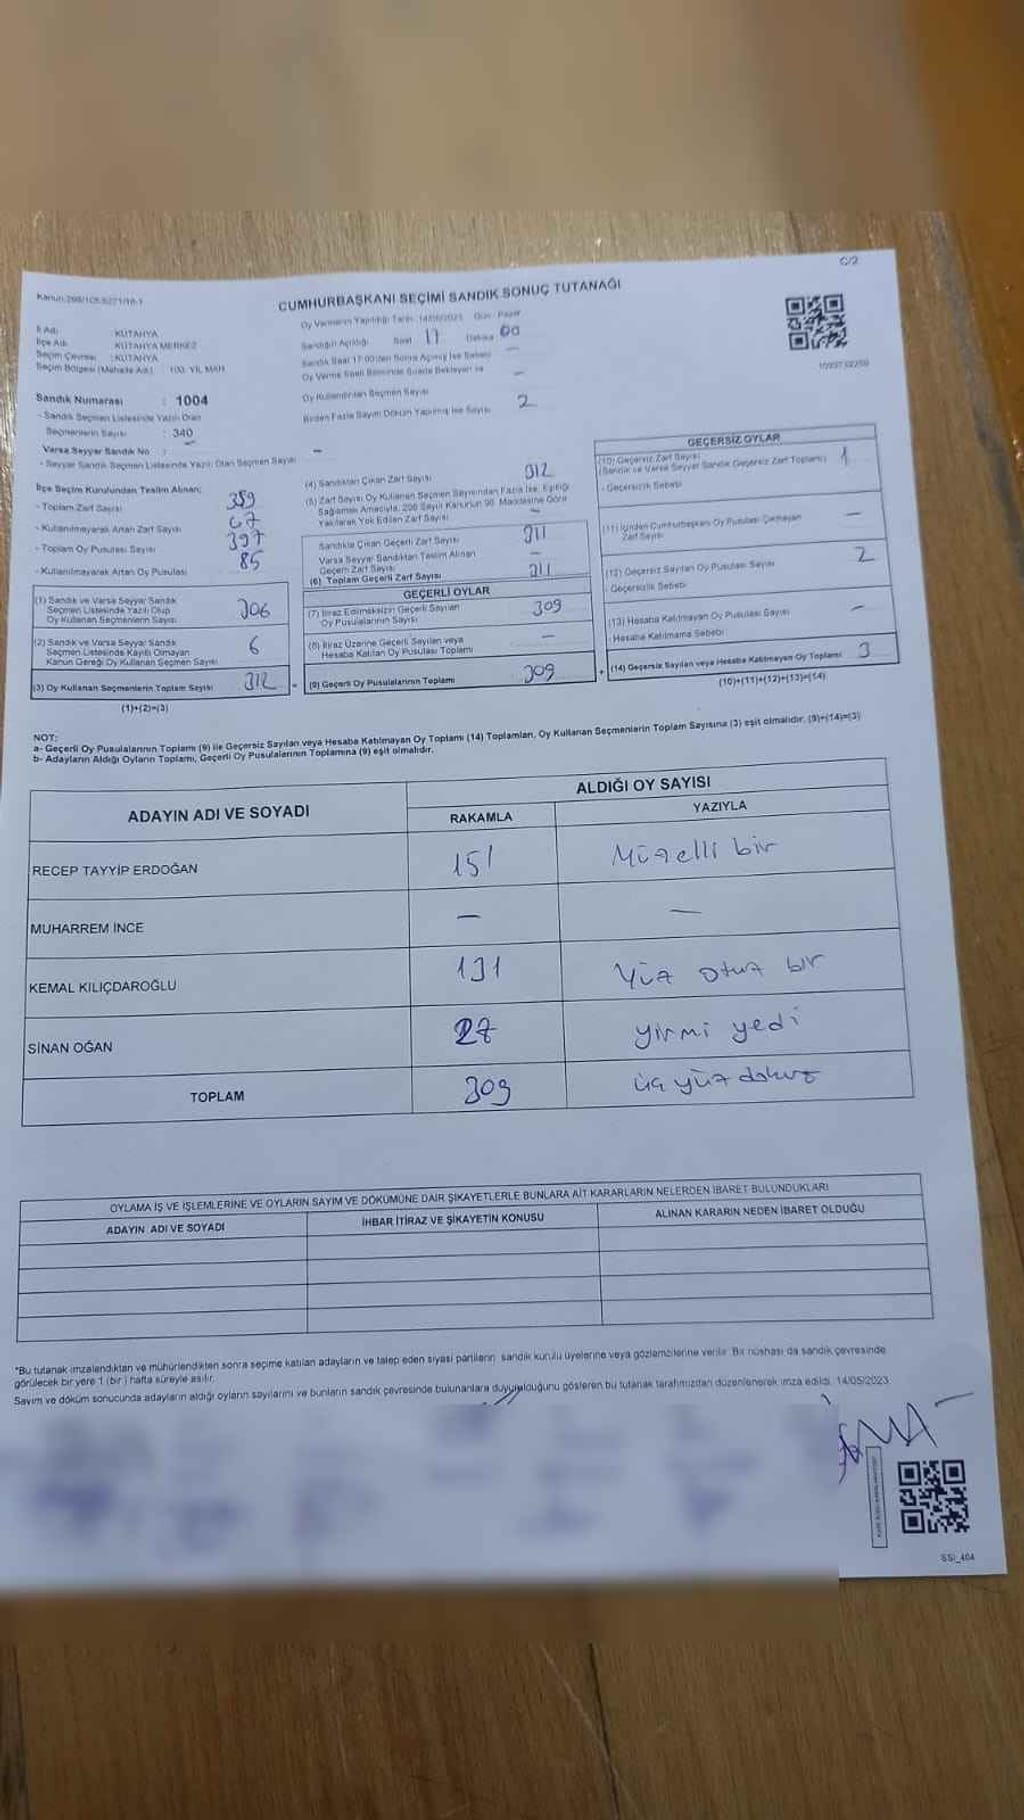 C/2
CUMHURBAŞKANI SEÇİMİ SANDIK SONUÇ TUTANAĞI
Oy Vermenin Yapıldığı Tarih: 14/05/2023 Gün: Pazar
İli Adı : KÜTAHYA
İlçe Adı : KÜTAHYA MERKEZ
Seçim Çevresi : KÜTAHYA
Seçim Bölgesi (Mahalle Adı) : 100. YIL MAH.
Sandığın Açıldığı Saat 17 Dakika 00
Sandık Saat 17:00'den Sonra Açılmış İse Sebebi —
Oy Verme
—
Oy Kullandırılan Seçmen Sayısı
Birden Fazla Sayım Döküm Yapılmış İse Sayısı 2
Sandık Numarası : 1004
- Sandık Seçmen Listesinde Yazılı Olan
Seçmenlerin Sayısı : 340
Varsa Seyyar Sandık No :
- Seyyar Sandık Seçmen Listesinde Yazılı Olan Seçmen Sayısı —
İlçe Seçim Kurulundan Teslim Alınan;
- Toplam Zarf Sayısı 359
- Kullanılmayarak Artan Zarf Sayısı 67
- Toplam Oy Pusulası Sayısı 397
- Kullanılmayarak Artan Oy Pusulası 85
(1) Sandık ve Varsa Seyyar Sandık
Seçmen Listesinde Yazılı Olup
Oy Kullanan Seçmenlerin Sayısı 306
(2) Sandık ve Varsa Seyyar Sandık
Seçmen Listesinde Kayıtlı Olmayan
Kanun Gereği Oy Kullanan Seçmen Sayısı 6
(3) Oy Kullanan Seçmenlerin Toplam Sayısı 312 =
(1)+(2)=(3)
(4) Sandıktan Çıkan Zarf Sayısı 312
(5) Zarf Sayısı Oy Kullanan Seçmen Sayısından Fazla İse, Eşitliği
Sağlamak Amacıyla, 298 Sayılı Kanunun 98. Maddesine Göre
Yakılarak Yok Edilen Zarf Sayısı —
Sandıkta Çıkan Geçerli Zarf Sayısı 311
Varsa Seyyar Sandıktan Teslim Alınan
Geçerli Zarf Sayısı —
(6) Toplam Geçerli Zarf Sayısı 311
GEÇERLİ OYLAR
(7) İtiraz Edilmeksizin Geçerli Sayılan
Oy Pusulalarının Sayısı 309
(8) İtiraz Üzerine Geçerli Sayılan veya
Hesaba Katılan Oy Pusulası Toplamı —
(9) Geçerli Oy Pusulalarının Toplamı 309 +
GEÇERSİZ OYLAR
(10) Geçersiz Zarf Sayısı
(Sandık ve Varsa Seyyar Sandık Geçersiz Zarf Toplamı) 1
- Geçersizlik Sebebi:
(11) İçinden Cumhurbaşkanı Oy Pusulası Çıkmayan
Zarf Sayısı —
(12) Geçersiz Sayılan Oy Pusulası Sayısı 2
- Geçersizlik Sebebi:
(13) Hesaba Katılmayan Oy Pusulası Sayısı —
- Hesaba Katılmama Sebebi:
(14) Geçersiz Sayılan veya Hesaba Katılmayan Oy Toplamı 3
(10)+(11)+(12)+(13)=(14)
NOT:
a- Geçerli Oy Pusulalarının Toplamı (9) ile Geçersiz Sayılan veya Hesaba Katılmayan Oy Toplamı (14) Toplamları, Oy Kullanan Seçmenlerin Toplam Sayısına (3) eşit olmalıdır. (9)+(14)=(3)
b- Adayların Aldığı Oyların Toplamı, Geçerli Oy Pusulalarının Toplamına (9) eşit olmalıdır.
ADAYIN ADI VE SOYADI
ALDIĞI OY SAYISI
RAKAMLA YAZIYLA
RECEP TAYYİP ERDOĞAN 151 Yüzelli bir
MUHARREM İNCE — —
KEMAL KILIÇDAROĞLU 131 Yüz otuz bir
SİNAN OĞAN 27 yirmi yedi
TOPLAM 309 üç yüz dokuz
OYLAMA İŞ VE İŞLEMLERİNE VE OYLARIN SAYIM VE DÖKÜMÜNE DAİR ŞİKAYETLERLE BUNLARA AİT KARARLARIN NELERDEN İBARET BULUNDUKLARI
ADAYIN ADI VE SOYADI İHBAR İTİRAZ VE ŞİKAYETİN KONUSU ALINAN KARARIN NEDEN İBARET OLDUĞU
*Bu tutanak imzalandıktan ve mühürlendikten sonra seçime katılan adayların ve talep eden siyasi partilerin sandık kurulu üyelerine veya gözlemcilerine verilir. Bir nüshası da sandık çevresinde
görülecek bir yere 1 (bir) hafta süreyle asılır.
Sayım ve döküm sonucunda adayların aldığı oyların sayılarını ve bunların sandık çevresinde bulunanlara duyurulduğunu gösteren bu tutanak tarafımızdan düzenlenerek imza edildi. 14/05/2023
SSİ_404